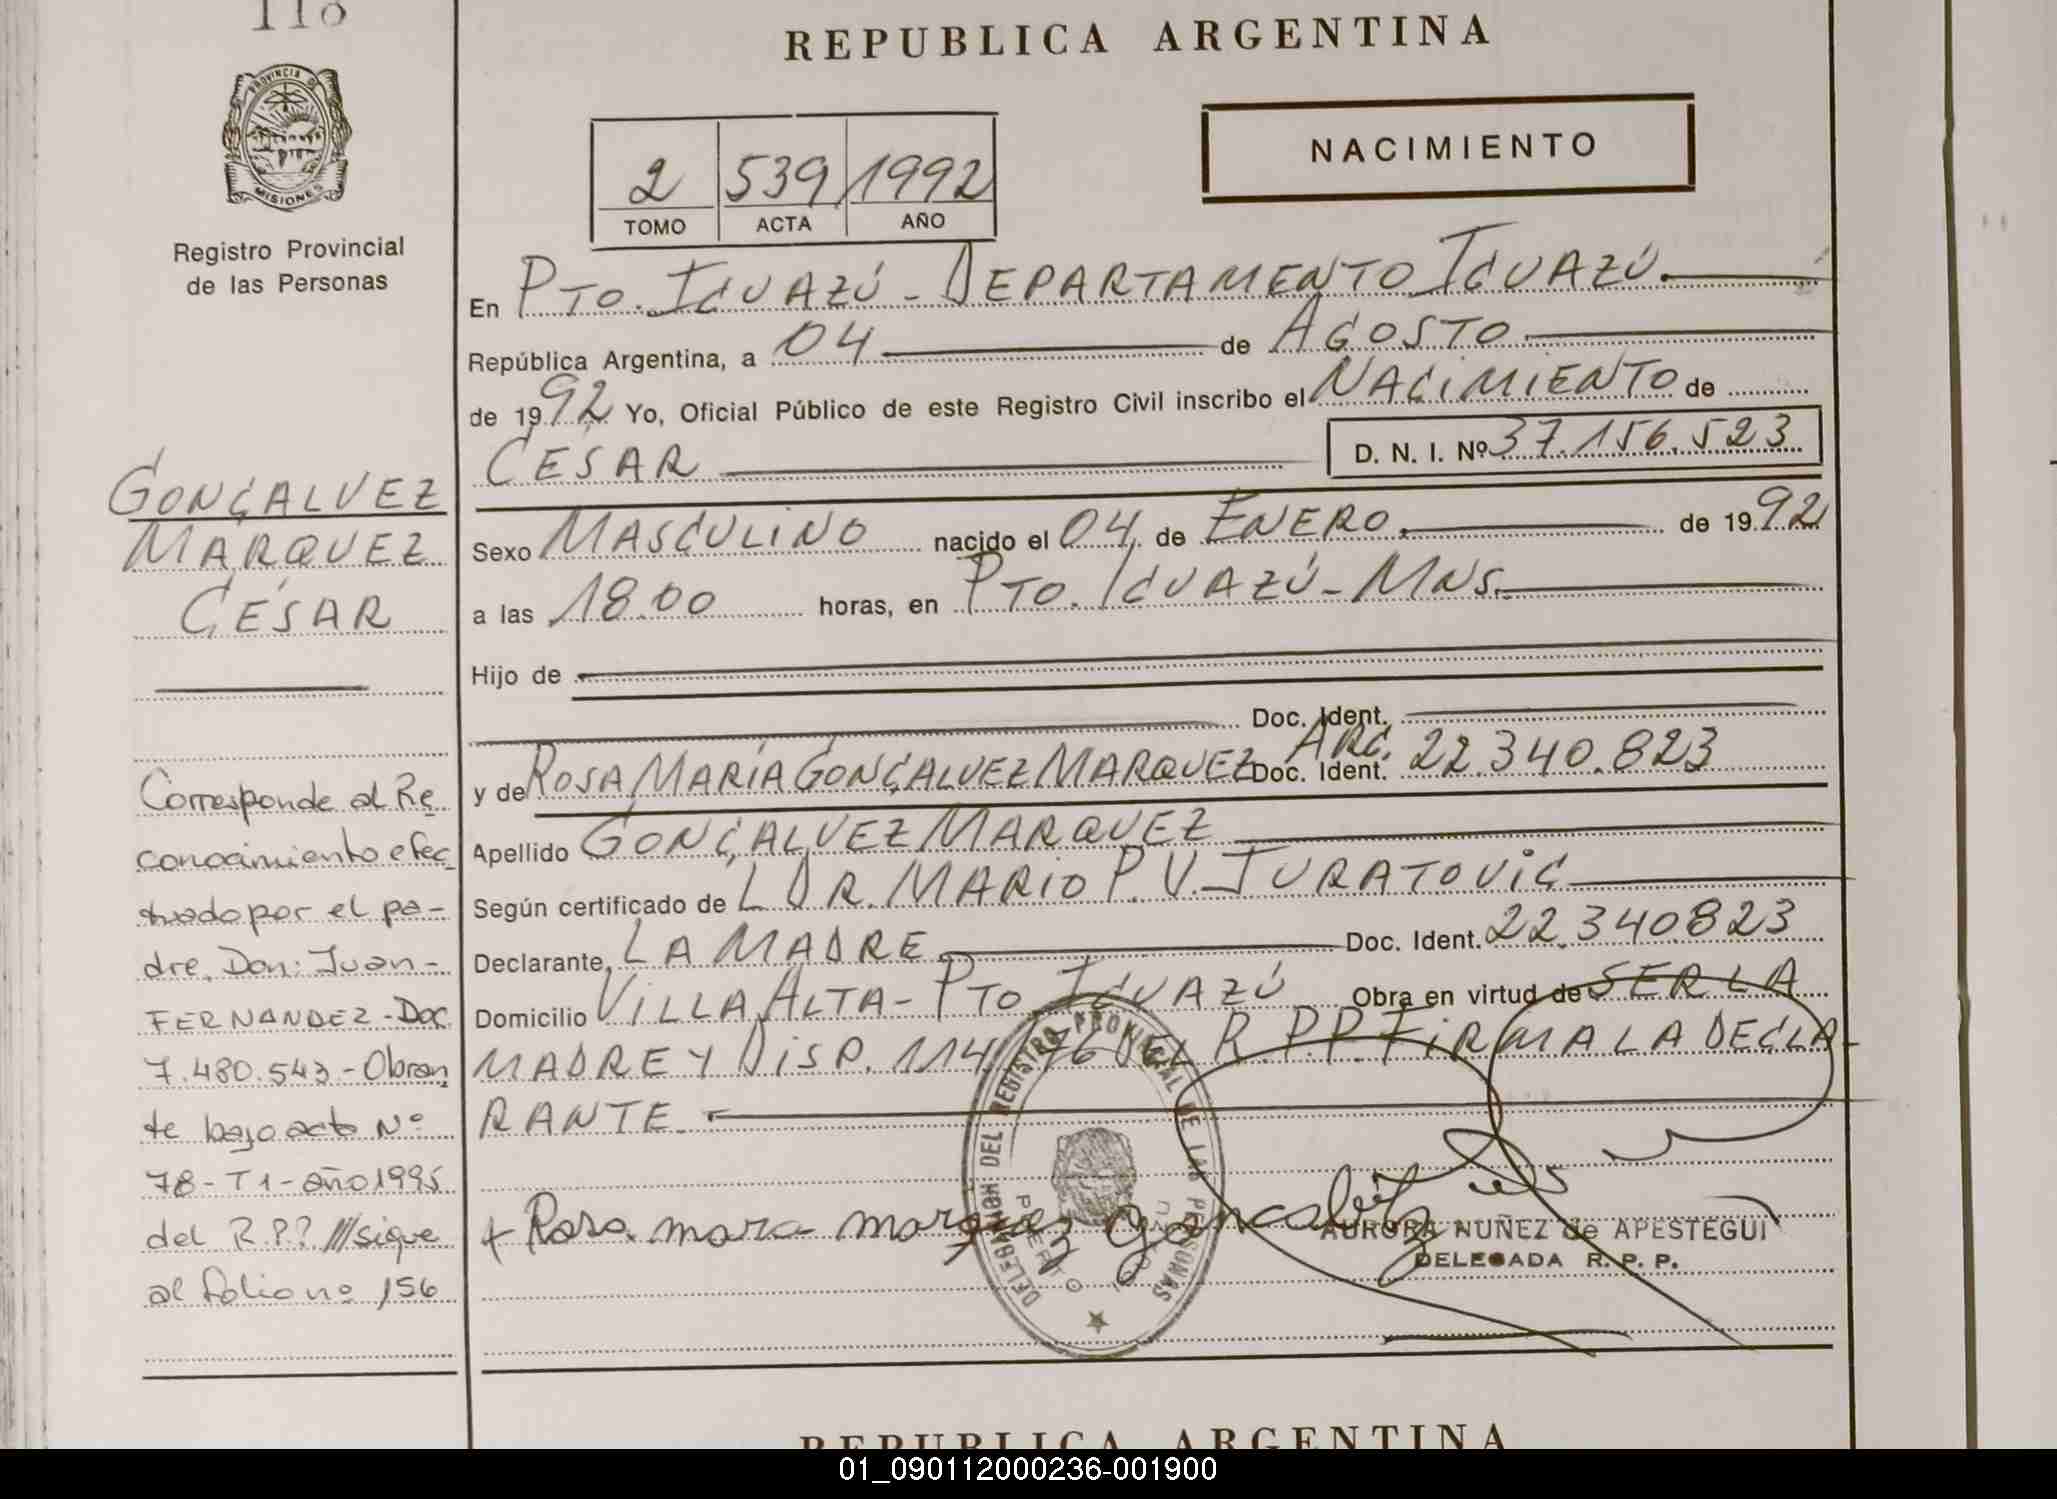 118
REPUBLICA ARGENTINA
PROVINCIA D
MISIONES
Registro Provincial
de las Personas
2 539 1992
TOMO ACTA AÑO
NACIMIENTO
En PTO. IGUAZÚ - DEPARTAMENTO IGUAZÚ.
República Argentina, a 04 de AGOSTO
de 1992 Yo, Oficial Público de este Registro Civil inscribo el NACIMIENTO de
CESAR D. N. I. Nº 37.156.523
Sexo MASCULINO nacido el 04 de ENERO. de 1992
a las 18.00 horas, en PTO. IGUAZÚ - MNS.
Hijo de
Doc. Ident.
ARG.
y de ROSA MARÍA GONÇALVEZ MARQUEZ Doc. Ident. 22.340.823
Apellido GONÇALVEZ MARQUEZ
Según certificado de L DR. MARIO P. V. JURATOVIC
Declarante LA MADRE Doc. Ident. 22.340823
Domicilio VILLA ALTA - PTO IGUAZÚ Obra en virtud de SER LA
MADRE Y DISP. 114/76 DEL R.P.P. FIRMA LA DECLA-
RANTE.
+ Rosa mara marquez goncalvez
AURORA NUÑEZ de APESTEGUI
DELEGADA R. P. P.
DELEGACION DEL REGISTRO PROVINCIAL DE LAS PERSONAS
PUERTO
GONÇALVEZ
MARQUEZ
CESAR
Corresponde al Re
conocimiento efec
tuado por el pa-
dre, Don: Juan-
FERNANDEZ - Doc
7.480.543 - Obran
te bajo acta Nº
78 - T1 - año 1995
del R.P.P. ///sigue
al folio nº 156
REPUBLICA ARGENTINA
01_090112000236-001900